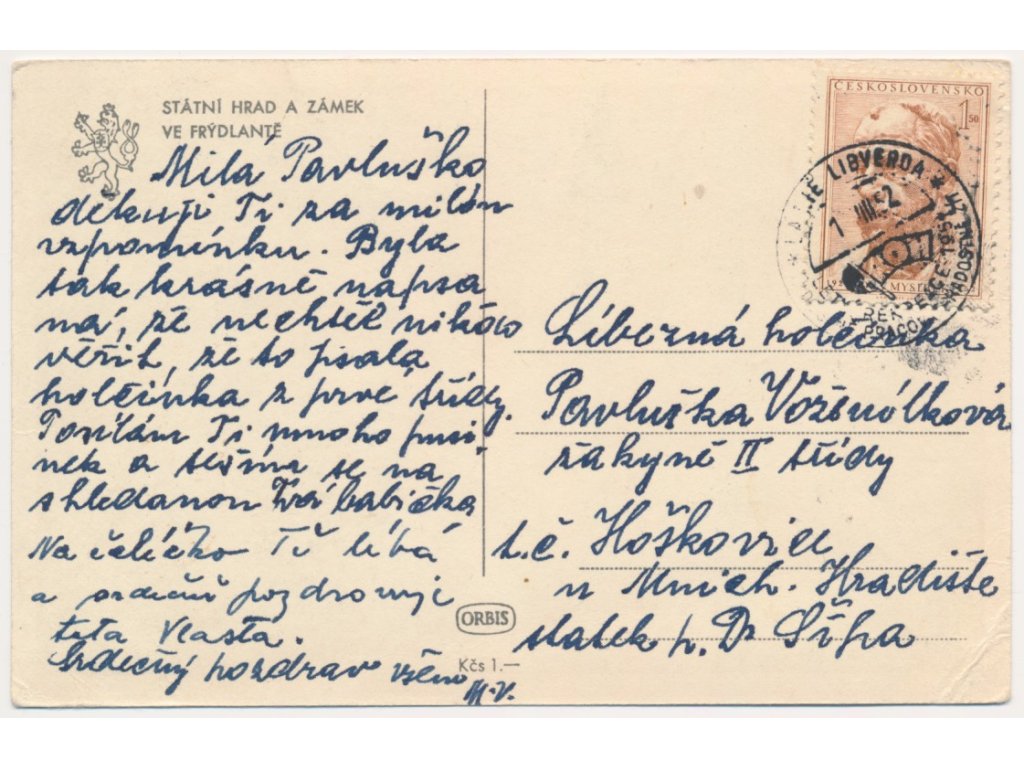 STÁTNÍ HRAD A ZÁMEK
VE FRÝDLANTĚ
Milá Pavluško
děkuji Ti za milou
vzpomínku. Byla
tak krásně napsa
ná, že nechtěl nikdo
věřit, že to psala
holčinka z prvé třídy.
Posílám Ti mnoho pusi
nek a těším se na
shledanou Tvá babička
Na čelíčko Tě líbá
a srdečně pozdravuje
teta Vlasta.
Srdečný pozdrav všem
M.V.
ORBIS
Kčs 1.—
ČESKOSLOVENSKO
1 50
LÁZNĚ LIBVERDA
1 VIII 52
Líbezná holčinka
Pavluška Voženílková
žákyně II třídy
t.č. Hoškovice
u Mnich. Hradiště
statek p. Dr Šípa